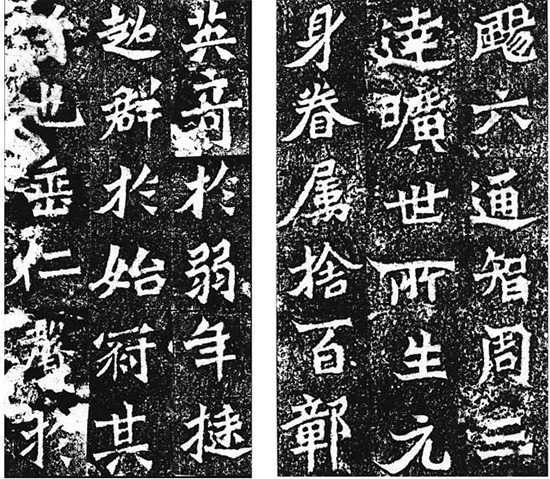 颺六通智周三
達曠世所生元
身眷属捨百鄣
英奇於弱年挺
超群於始冠其
也垂仁聲於